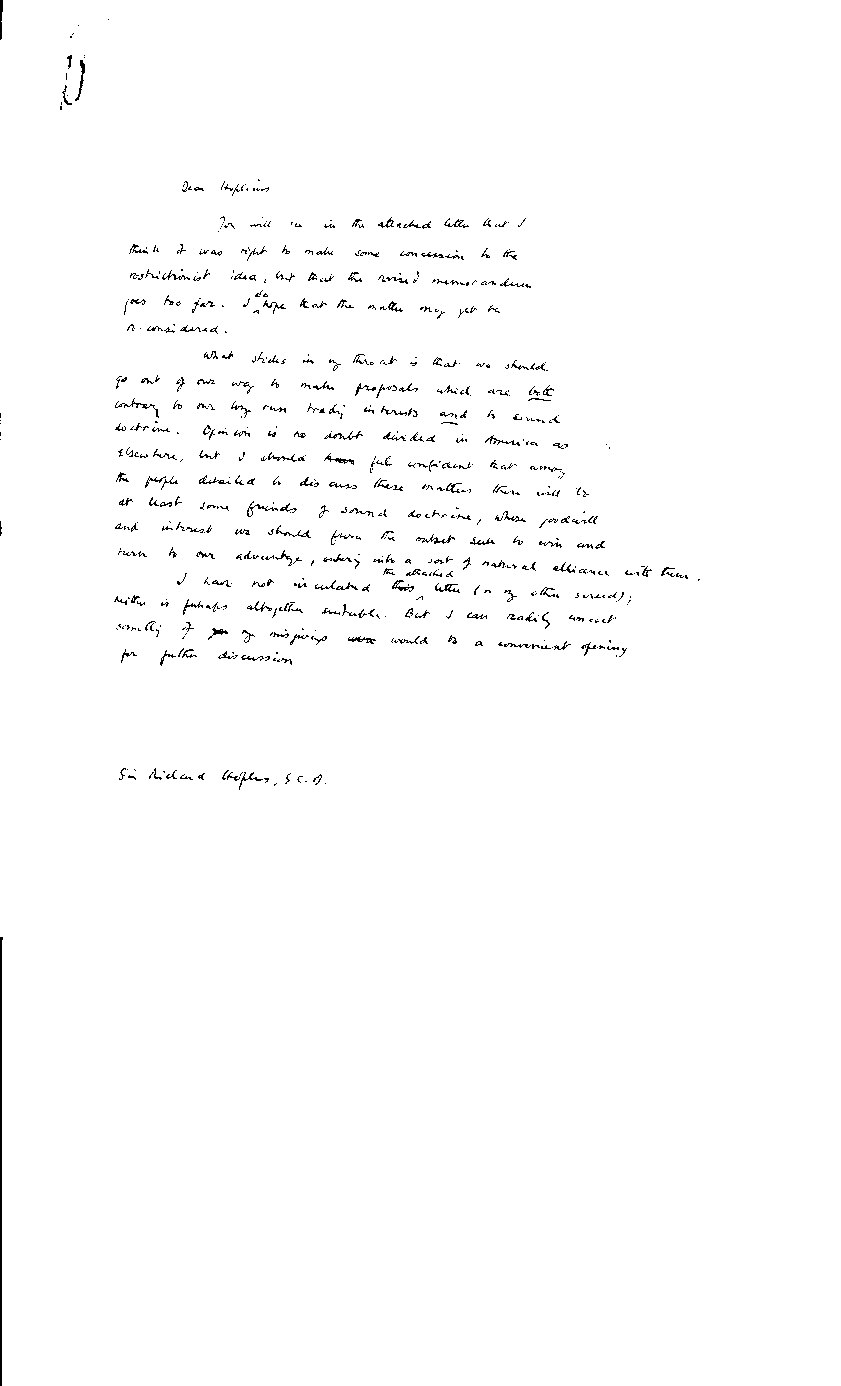 Dear Hopkins
You will see in the attached letter that I
think it was right to make some concession to the
restrictionist idea, but that the revised memorandum
goes too far. I do hope that the matter may yet be
re-considered.
What sticks in my throat is that we should
go out of our way to make proposals which are both
contrary to our long run trading interests and to sound
doctrine. Opinion is no doubt divided in America as
elsewhere, but I should feel confident that among
the people detailed to discuss these matters there will be
at least some friends of sound doctrine, whose goodwill
and interest we should from the outset seek to win and
turn to our advantage, entering into a sort of natural alliance with them.
I have not circulated the attached letter (or my other screed);
neither is perhaps altogether suitable. But I can readily concoct
something if my misgivings would be a convenient opening
for further discussion
Sir Richard Hopkins, G.C.B.